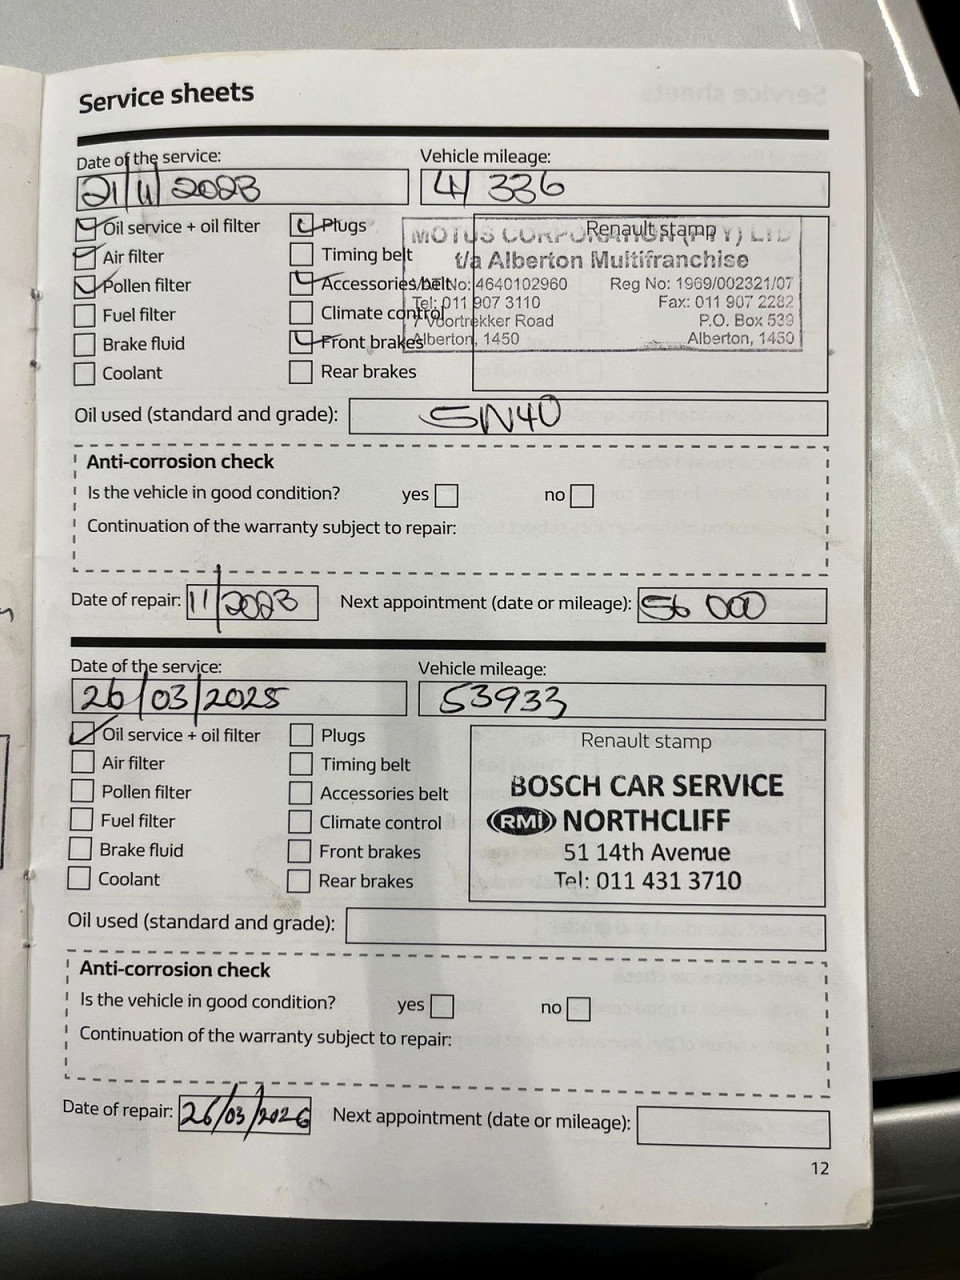 Service sheets
Date of the service: Vehicle mileage:
21/11/2023 41 336
Oil service + oil filter Plugs Renault stamp
MOTUS CORPORATION (PTY) LTD
Air filter Timing belt t/a Alberton Multifranchise
Pollen filter Accessories belt VAT No: 4640102960 Reg No: 1969/002321/07
Fuel filter Climate control Tel: 011 907 3110 Fax: 011 907 2282
7 Voortrekker Road P.O. Box 539
Brake fluid Front brakes Alberton, 1450 Alberton, 1450
Coolant Rear brakes
Oil used (standard and grade): 5W40
Anti-corrosion check
Is the vehicle in good condition? yes no
Continuation of the warranty subject to repair:
Date of repair: 11/2023 Next appointment (date or mileage): 56 000
Date of the service: Vehicle mileage:
26/03/2025 53933
Oil service + oil filter Plugs Renault stamp
Air filter Timing belt
Pollen filter Accessories belt BOSCH CAR SERVICE
Fuel filter Climate control RMi NORTHCLIFF
Brake fluid Front brakes 51 14th Avenue
Coolant Rear brakes Tel: 011 431 3710
Oil used (standard and grade):
Anti-corrosion check
Is the vehicle in good condition? yes no
Continuation of the warranty subject to repair:
Date of repair: 26/03/2026 Next appointment (date or mileage):
12